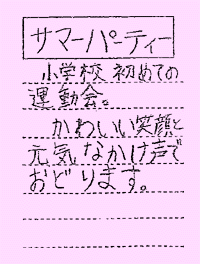 サマーパーティー
小学校初めての
運動会。
かわいい笑顔と
元気なかけ声で
おどります。